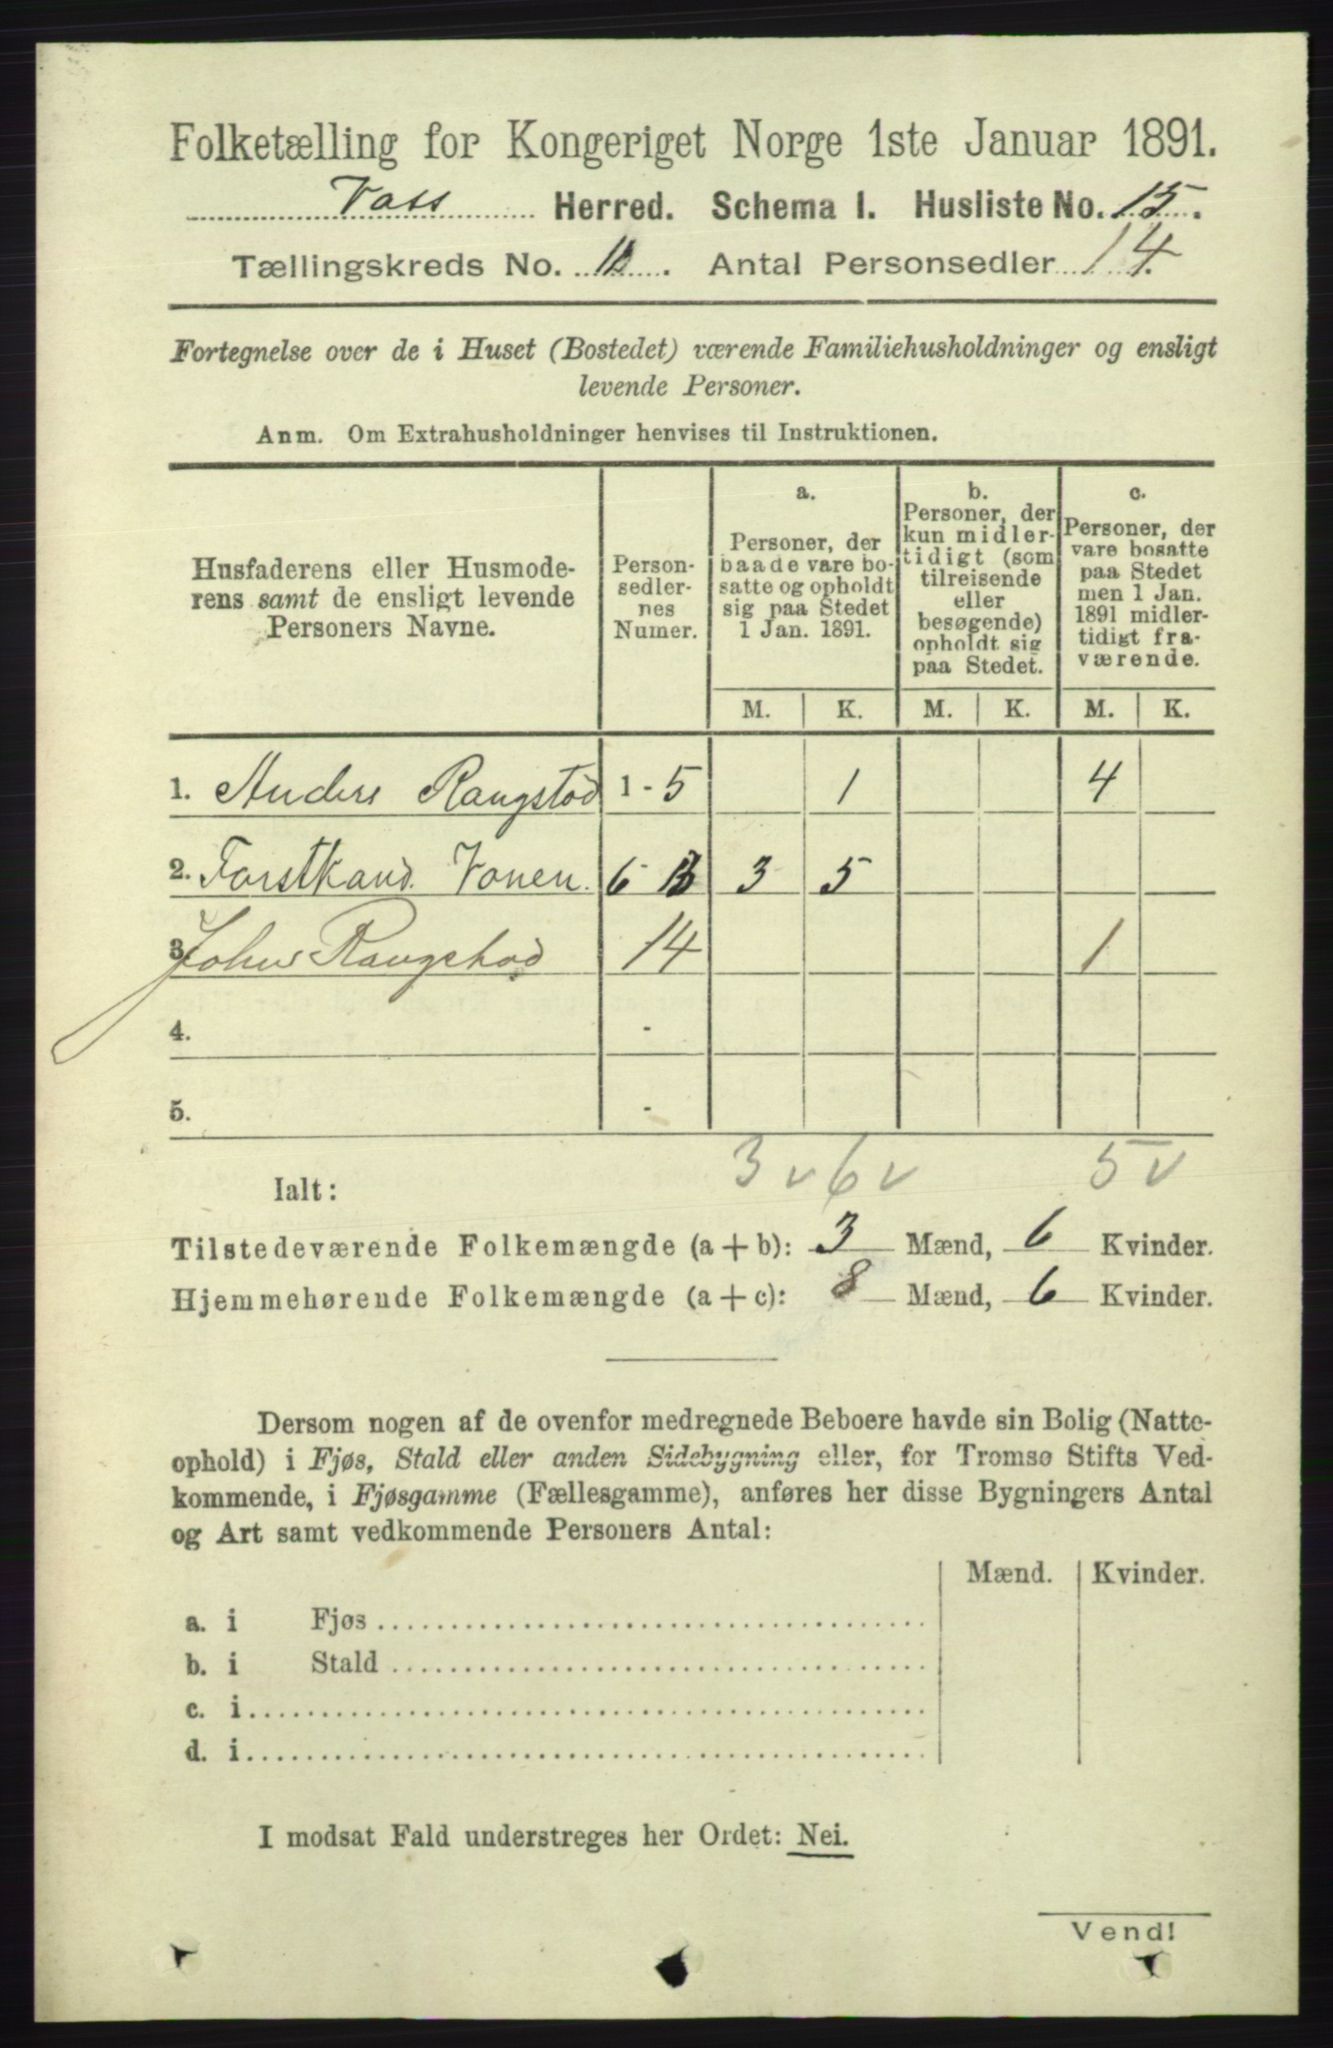 Folketælling for Kongeriget Norge 1ste Januar 1891.
Voss Herred. Schema I. Husliste No. 15.
Tællingskreds No. . Antal Personsedler 14.
Fortegnelse over de i Huset (Bostedet) værende Familiehusholdninger og ensligt
levende Personer.
Anm. Om Extrahusholdninger henvises til Instruktionen.
Husfaderens eller Husmode-
rens samt de ensligt levende
Personers Navne.
Person-
sedler-
nes
Numer.
a.
Personer, der
baade vare bo-
satte og opholdt
sig paa Stedet
1 Jan. 1891.
b.
Personer, der
kun midler-
tidigt (som
tilreisende
eller
besøgende)
opholdt sig
paa Stedet.
c.
Personer, der
vare bosatte
paa Stedet
men 1 Jan.
1891 midler-
tidigt fra-
værende.
M. K. M. K. M. K.
1. Anders Rangstod 1 - 5 1 4
2. Forstkand. Vonen. 6 - 13 3 5
3. Johs Rangstod 14 1
4. -
5. -
3 v 6 v 5 v
Ialt:
Tilstedeværende Folkemængde (a + b): 3 Mænd, 6 Kvinder.
Hjemmehørende Folkemængde (a + c): 8 Mænd, 6 Kvinder.
Dersom nogen af de ovenfor medregnede Beboere havde sin Bolig (Natte-
ophold) i Fjøs, Stald eller anden Sidebygning eller, for Tromsø Stifts Ved-
kommende, i Fjøsgamme (Fællesgamme), anføres her disse Bygningers Antal
og Art samt vedkommende Personers Antal:
Mænd. Kvinder.
a. i Fjøs
b. i Stald
c. i
d. i
I modsat Fald understreges her Ordet: Nei.
Vend!